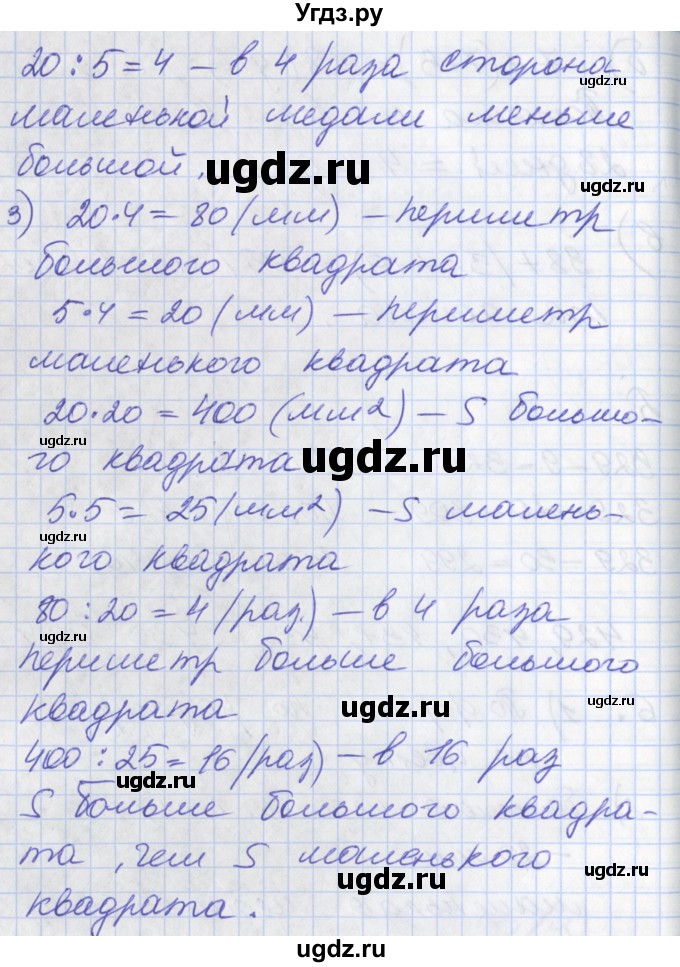 Угдз.ру
20 : 5 = 4 – в 4 раза сторона
маленькой медали меньше
большой.
ugdz.ru
ugdz.ru
3) 20·4 = 80 (мм) – периметр
ugdz.ru
большого квадрата
5·4 = 20 (мм) – периметр
ugdz.ru
маленького квадрата
20·20 = 400 (мм2) – S большо-
го квадрата
ugdz.ru
5·5 = 25 (мм2) – S малень-
ugdz.ru
кого квадрата
80 : 20 = 4 (раз.) – в 4 раза
ugdz.ru
ugdz.ru
периметр больше большого
квадрата
ugdz.ru
ugdz.ru
400 : 25 = 16 (раз) – в 16 раз
ugdz.ru
S больше большого квадра-
та, чем S маленького
ugdz.ru
квадрата.
ugdz.ru
ugdz.ru